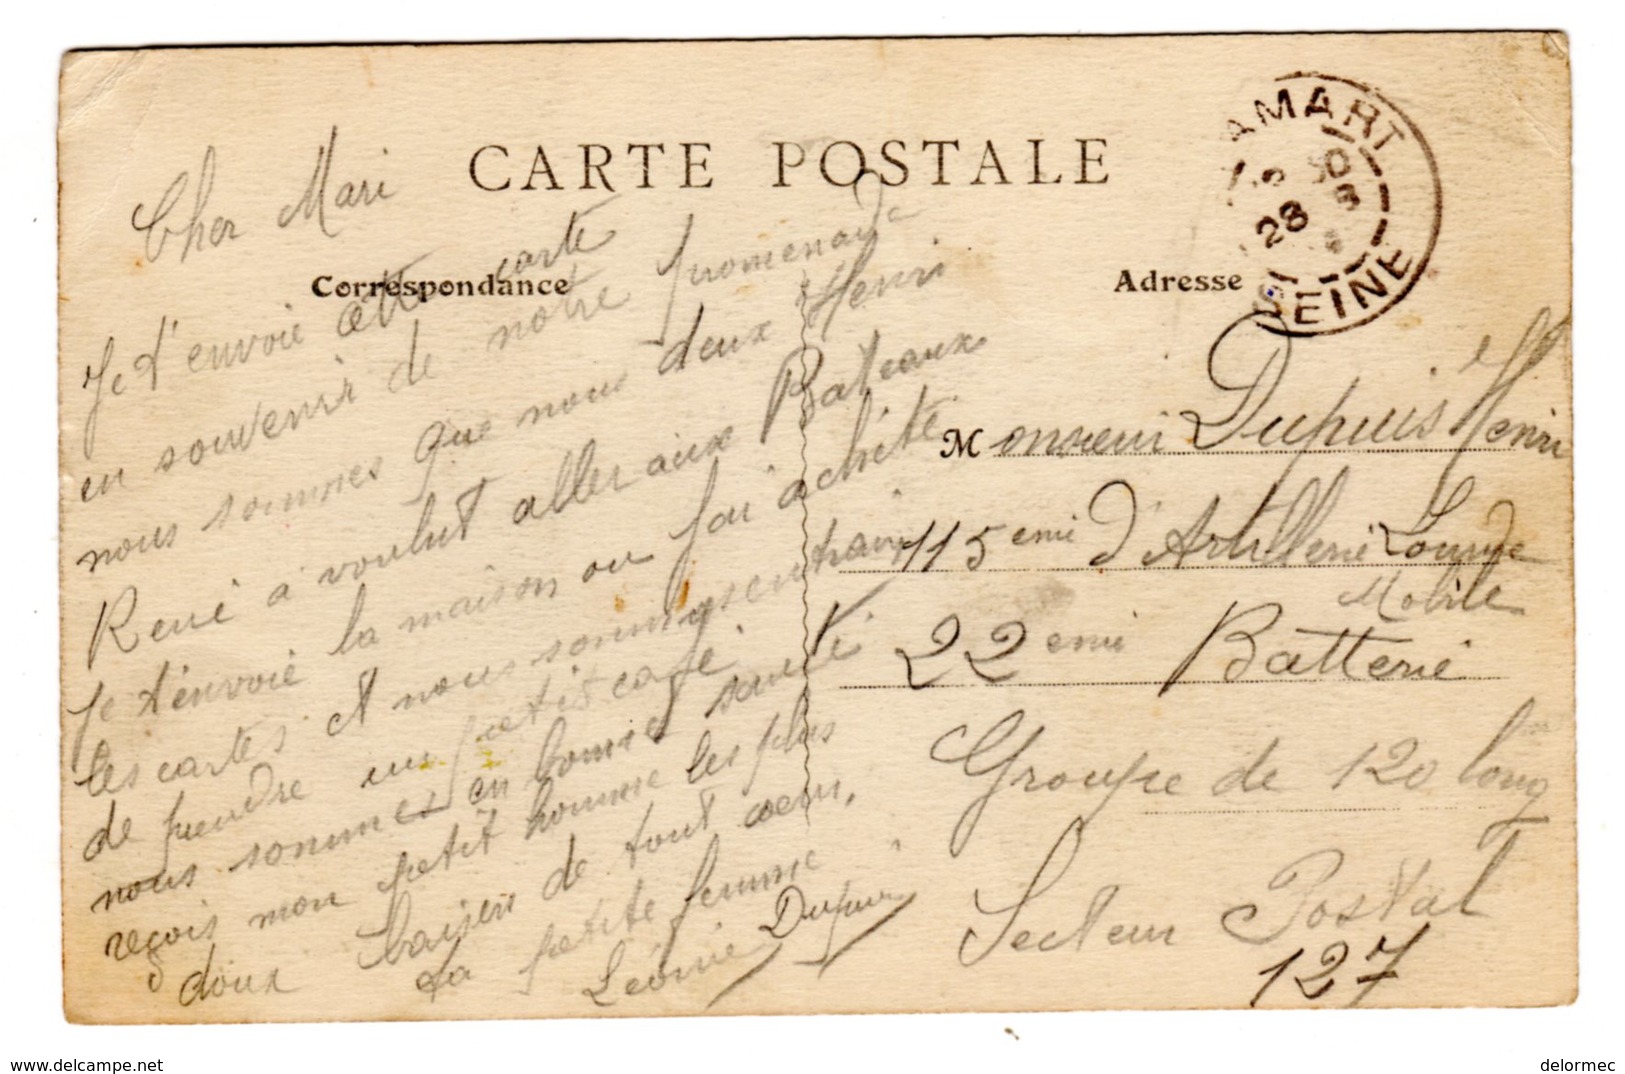 CARTE POSTALE
Correspondance
Adresse
CLAMART
28
SEINE
Cher Mari
Je t'envoie cette carte
en souvenir de notre promenade
nous sommes que nous deux Henri
René a voulut aller aux Bateaux
Je t'envoie la maison ou j'ai achété
les cartes et nous sommes entrain
de prendre un petit café.
nous sommes en bonne santé
reçois mon petit homme les plus
doux baisers de tout cœur.
ta petite femme
Léonie Dupuis
Monsieur Dupuis Henri
115 eme d'Artillerie Lourde
Mobile
22 eme Batterie
Groupe de 120 long
Secteur Postal
127
delormec